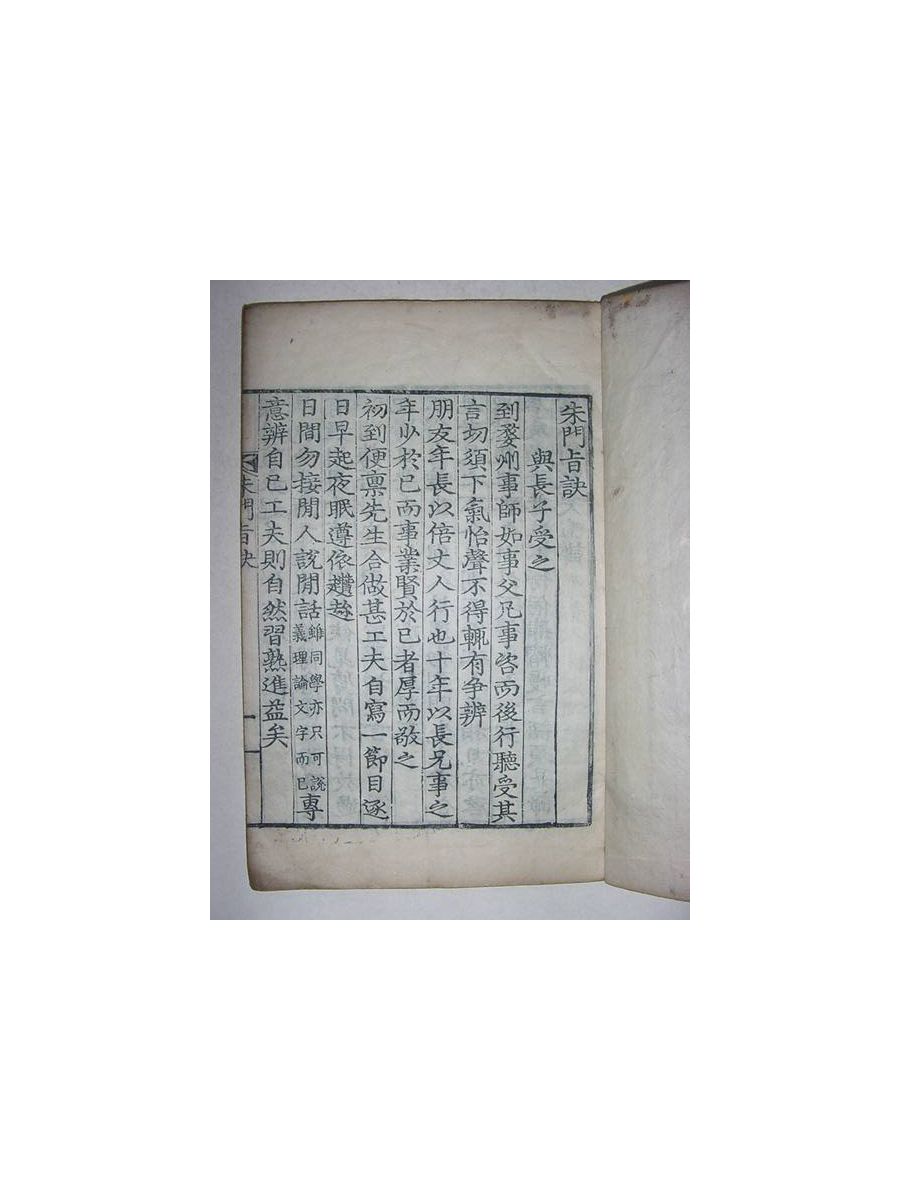 朱門旨訣
與長子受之
到婺州事師如事父凡事咨而後行聽受其
言切須下氣怡聲不得輒有争辨
朋友年長以倍丈人行也十年以長兄事之
年少於已而事業賢於已者厚而敬之
初到便禀先生合做甚工夫自寫一節目逐
日早起夜眠遵依趲趁
日間勿接閒人說閒話雖同學亦只可說義理論文字而已專
意辨自已工夫則自然習熟進益矣
朱門旨訣
一